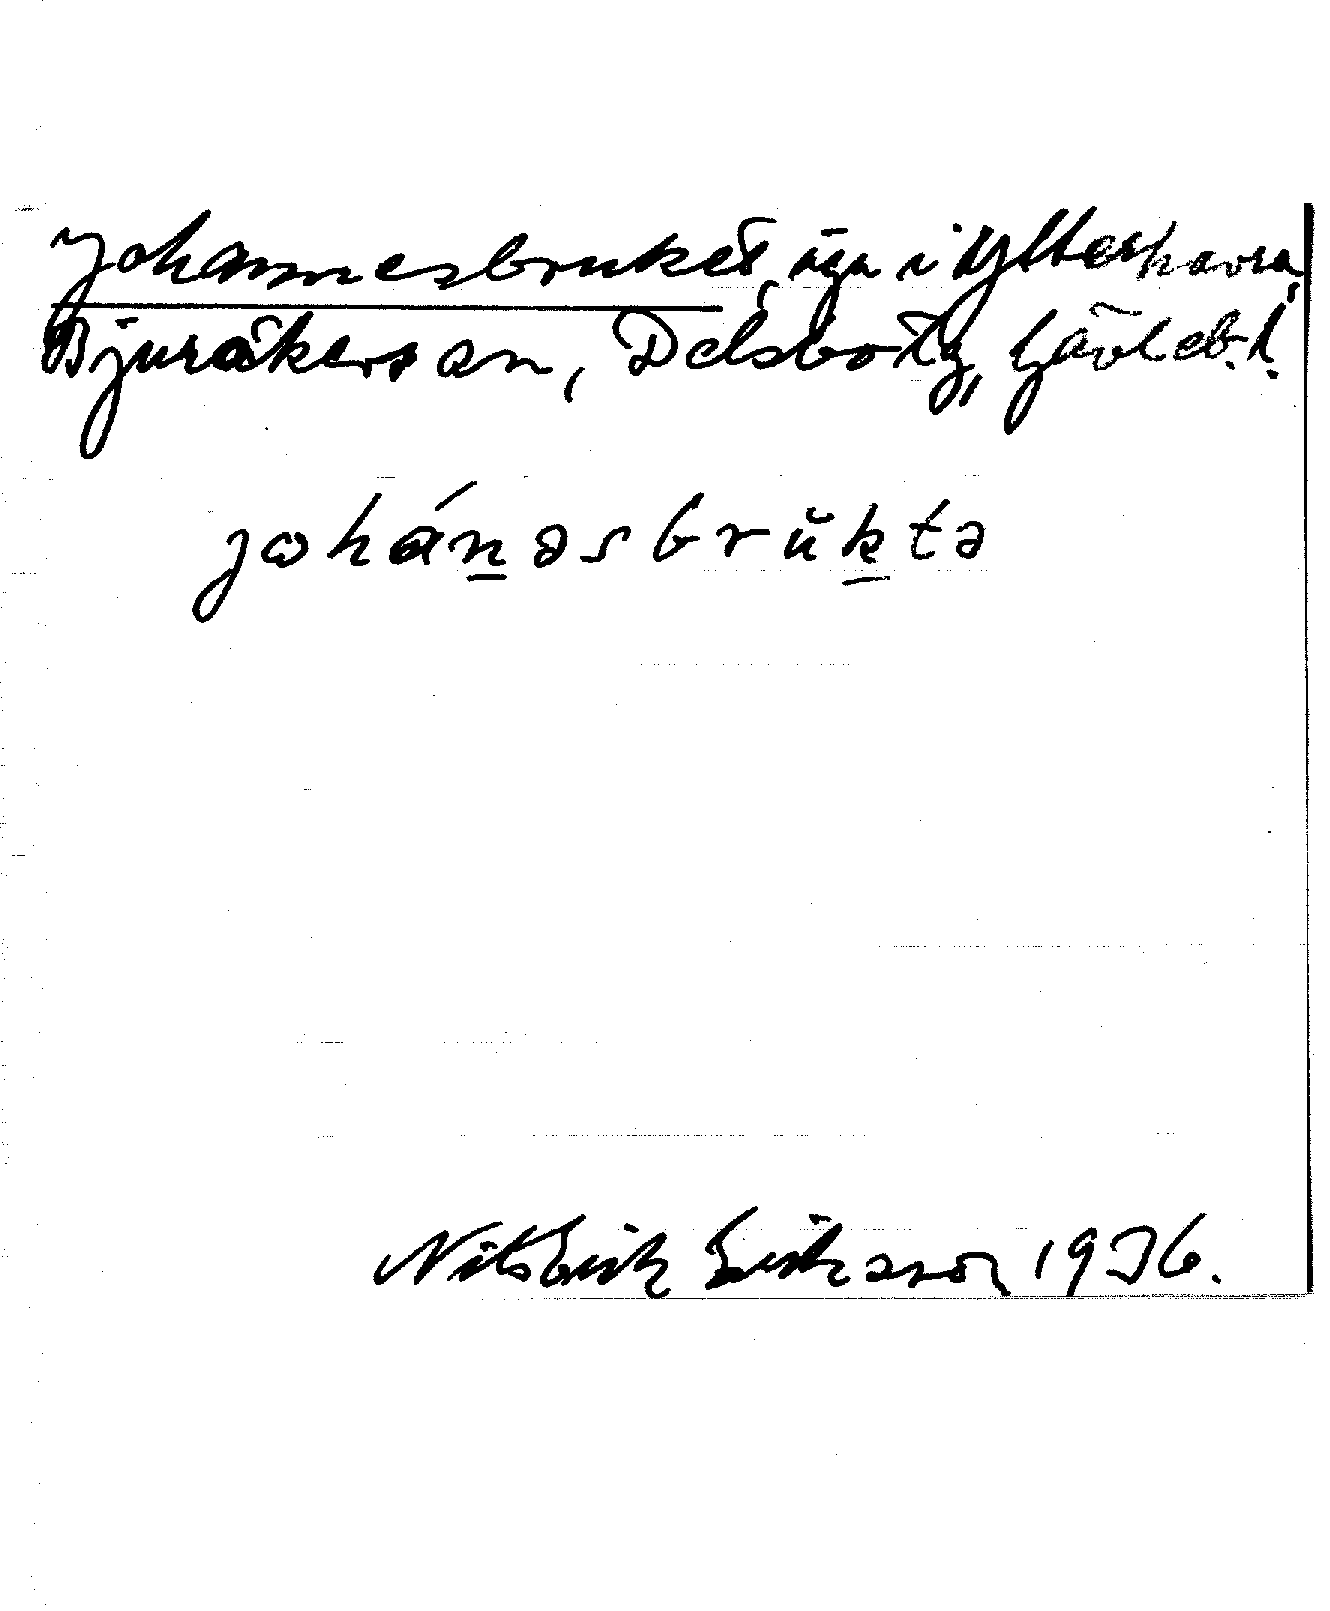 Johannesbruket, äga i Ytterhavra,
Bjuråkers sn, Delsbo tg, Gävleb. l.
johánəsbrŭktə
Nils Erik Erikson 1936.